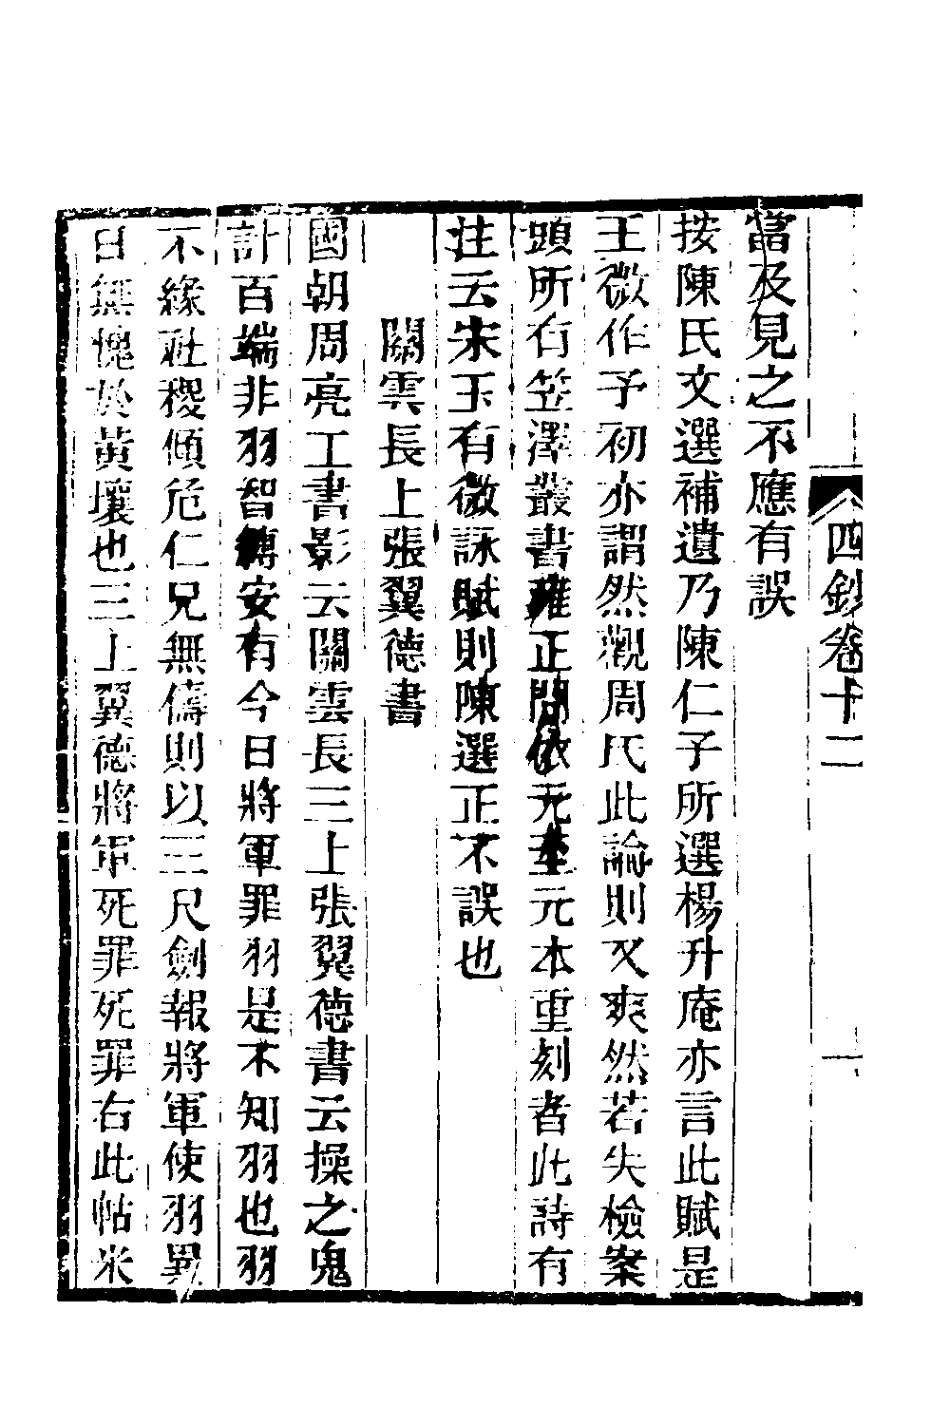 四鈔卷十二
一
當及見之不應有誤
按陳氏文選補遺乃陳仁子所選楊升庵亦言此賦是
王微作予初亦謂然觀周氏此論則又爽然若失檢案
頭所有笠澤叢書雍正間依元本重刻者此詩有
注云宋玉有微詠賦則陳選正不誤也
關雲長上張翼德書
國朝周亮工書影云關雲長三上張翼德書云操之鬼
計百端非羽智縛安有今日將軍罪羽是不知羽也羽
不緣社稷傾危仁兄無儔則以三尺劍報將軍使羽異
日無愧於黃壤也三上翼德將軍死罪死罪右此帖米